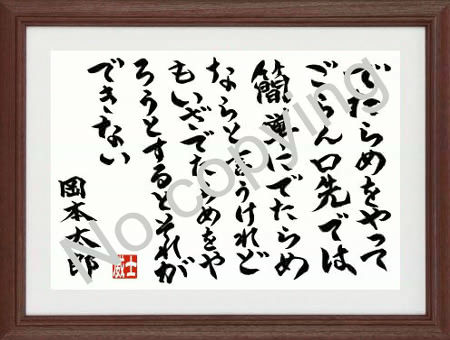 でたらめをやって
ごらん口先では
簡単にでたらめ
ならと言うけれど
もいざでたらめをや
ろうとするとそれが
できない
岡本太郎
No copying